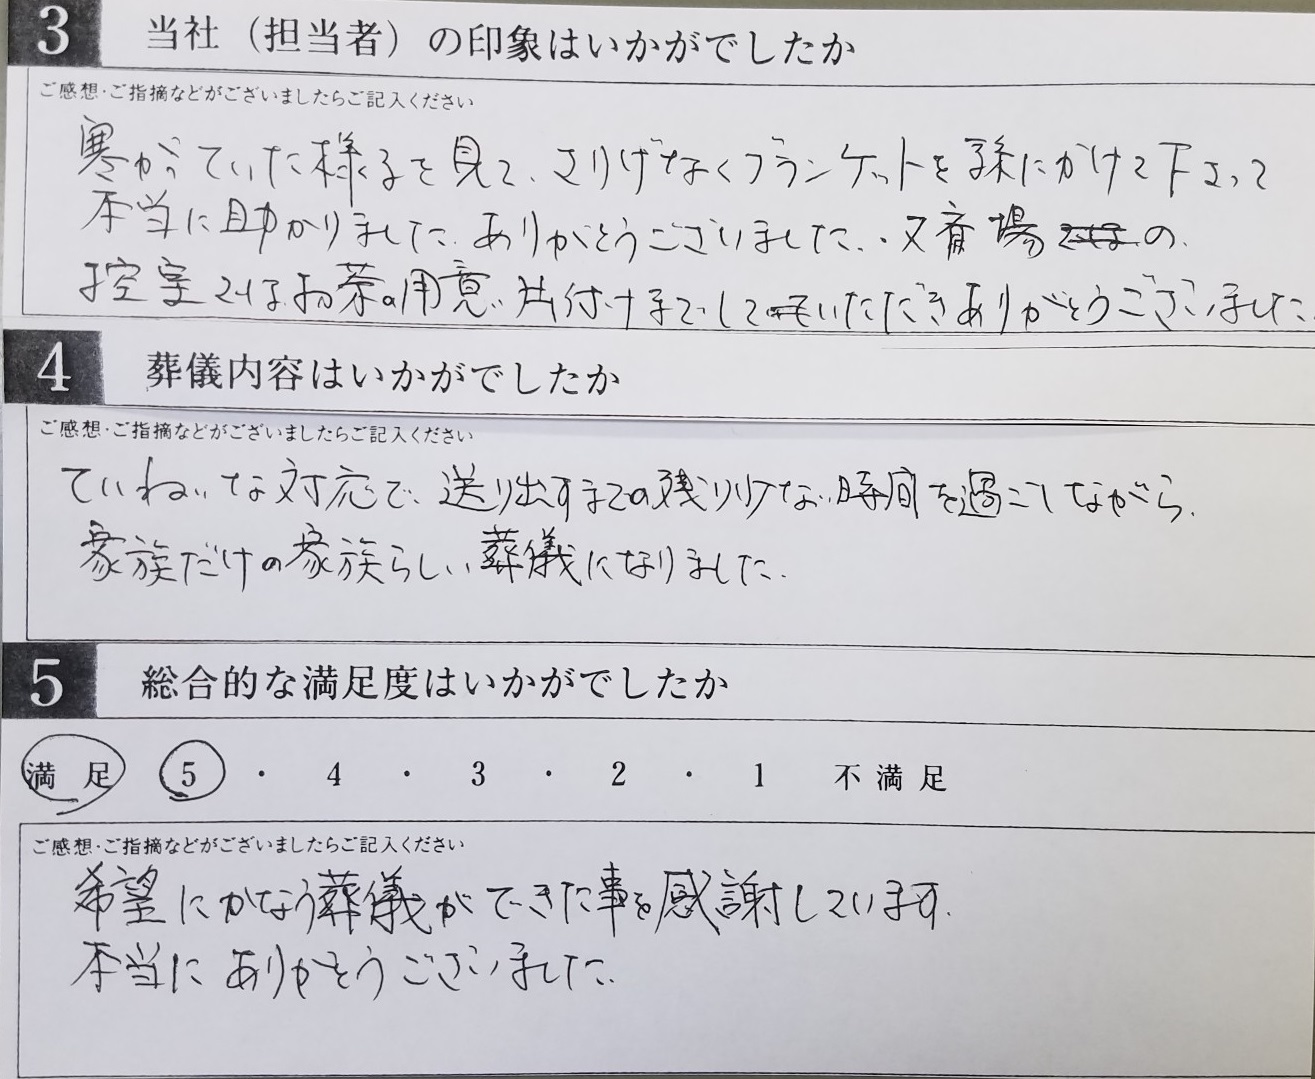 3 当社（担当者）の印象はいかがでしたか
ご感想・ご指摘などがございましたらご記入ください
寒がっていた様子を見て、さりげなくブランケットを孫にかけて下さって
本当に助かりました。ありがとうございました。・又斎場の
控室ではお茶の用意、片付けまでしていただきありがとうございました。
4 葬儀内容はいかがでしたか
ご感想・ご指摘などがございましたらご記入ください
ていねいな対応で、送り出すまでの残り少ない時間を過ごしながら、
家族だけの家族らしい葬儀になりました。
5 総合的な満足度はいかがでしたか
満足 5 ・ 4 ・ 3 ・ 2 ・ 1 不満足
ご感想・ご指摘などがございましたらご記入ください
希望にかなう葬儀ができた事を感謝しています。
本当にありがとうございました。